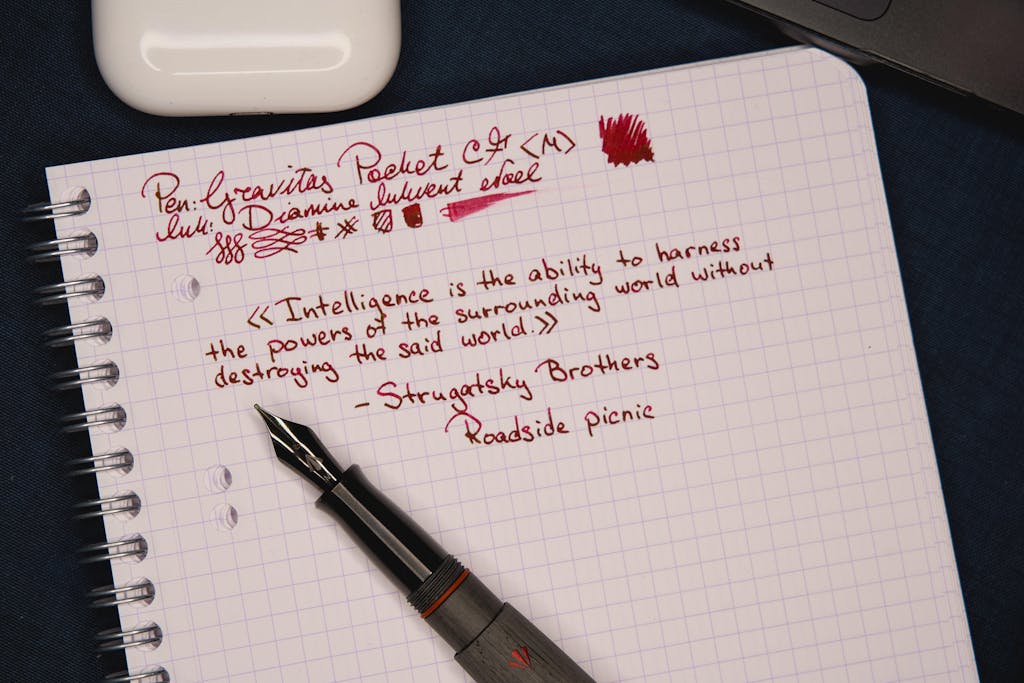 Pen: Gravitas Pocket CF <M>
Ink: Diamine Inkvent Noel
«Intelligence is the ability to harness
the powers of the surrounding world without
destroying the said world.»
– Strugatsky Brothers
Roadside picnic